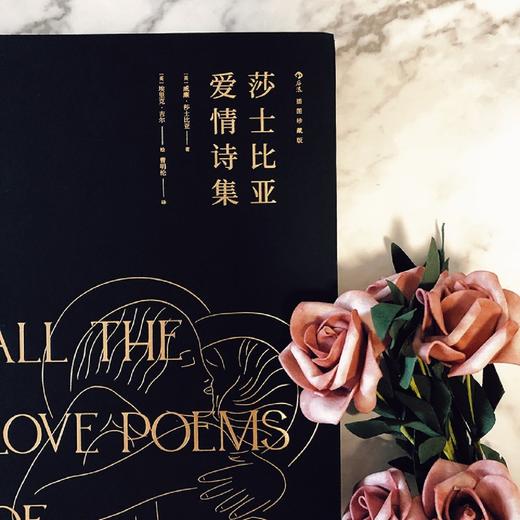 后浪 插图珍藏版
莎士比亚
爱情诗集
[英] 威廉·莎士比亚 著
[英] 埃里克·吉尔 绘 曹明伦 译
ALL THE
LOVE POEMS
OF